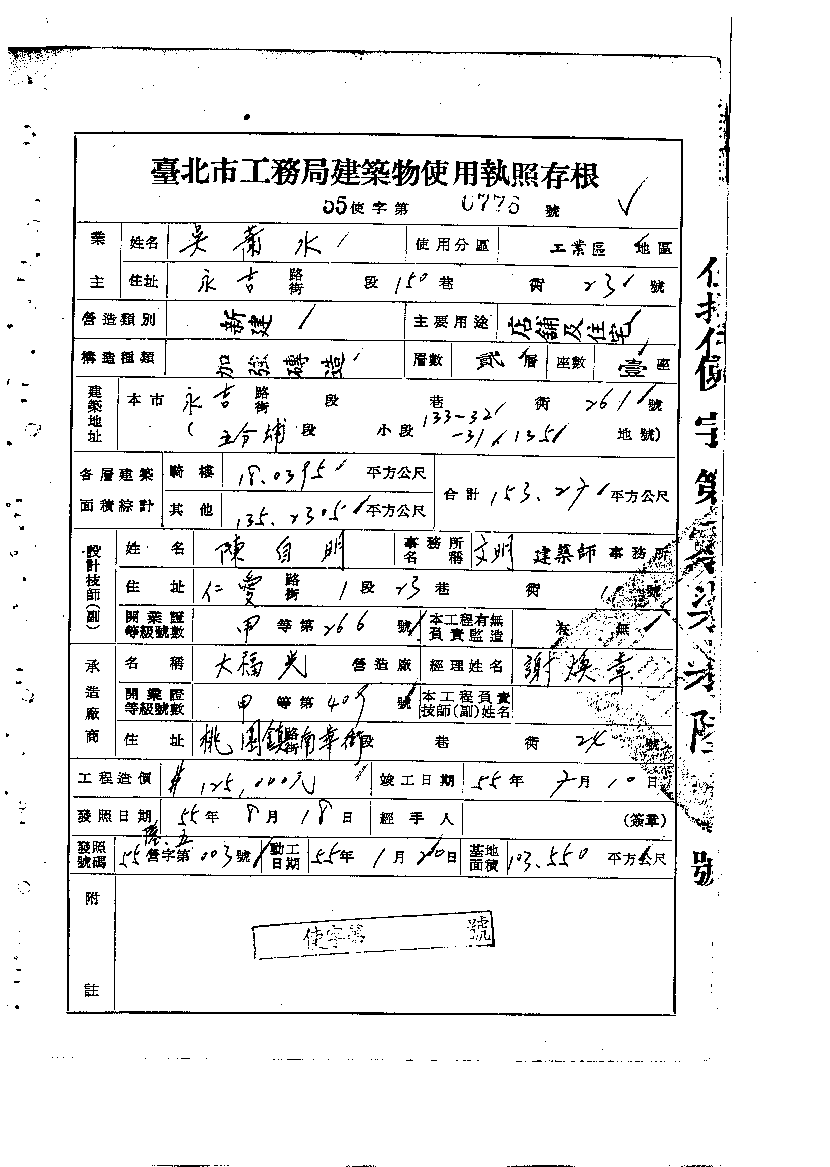 臺北市工務局建築物使用執照存根
55使字第 0776 號
業主 姓名 吳肅水 使用分區 工業區 地區
住址 永吉 路街 段 150 巷 衖 23 號
營造類別 新建 主要用途 店舖及住宅
構造種類 加強磚造 層數 貳 層 座數 壹 座
建築地址 本市 永吉 路街 段 巷 衖 261 號
(五分埔 段 小段 133-32 -31 135 地號)
各層建築面積綜計 騎樓 18.0395 平方公尺 合計 153.27 平方公尺
其他 135.2305 平方公尺
設計技師(副) 姓名 陳自明 事務所名稱 文明 建築師事務所
住址 仁愛 路街 1 段 23 巷 衖 號
開業證等級號數 甲 等第 266 號 本工程有無負責監造 有 無
承造廠商 名稱 大福光 營造廠 經理姓名 謝煥章
開業證等級號數 甲 等第 號 本工程負責技師(副)姓名
住址 桃園鎮 路街 段 巷 衖 24 號
工程造價 125,000元 竣工日期 55 年 7 月 10 日
發照日期 55 年 8 月 18 日 經手人 (簽章)
發照號碼 55 營字第 003 號 動工日期 55 年 1 月 20 日 基地面積 103.550 平方公尺
附註
使字第 號
使字第 號